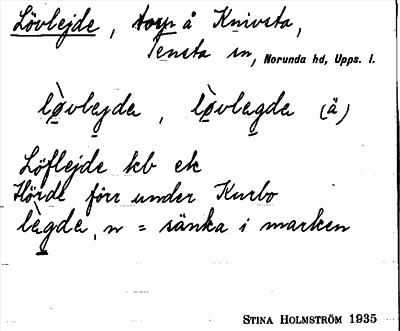 Lövlejde, torp å Knivsta,
Tensta sn, Norunda hd, Upps. l.
lo̱vlejda, lo̱vlegda (å)
Löflejde kb ek
Hörde förr under Kurbo
lägda, n = sänka i marken
STINA HOLMSTRÖM 1935